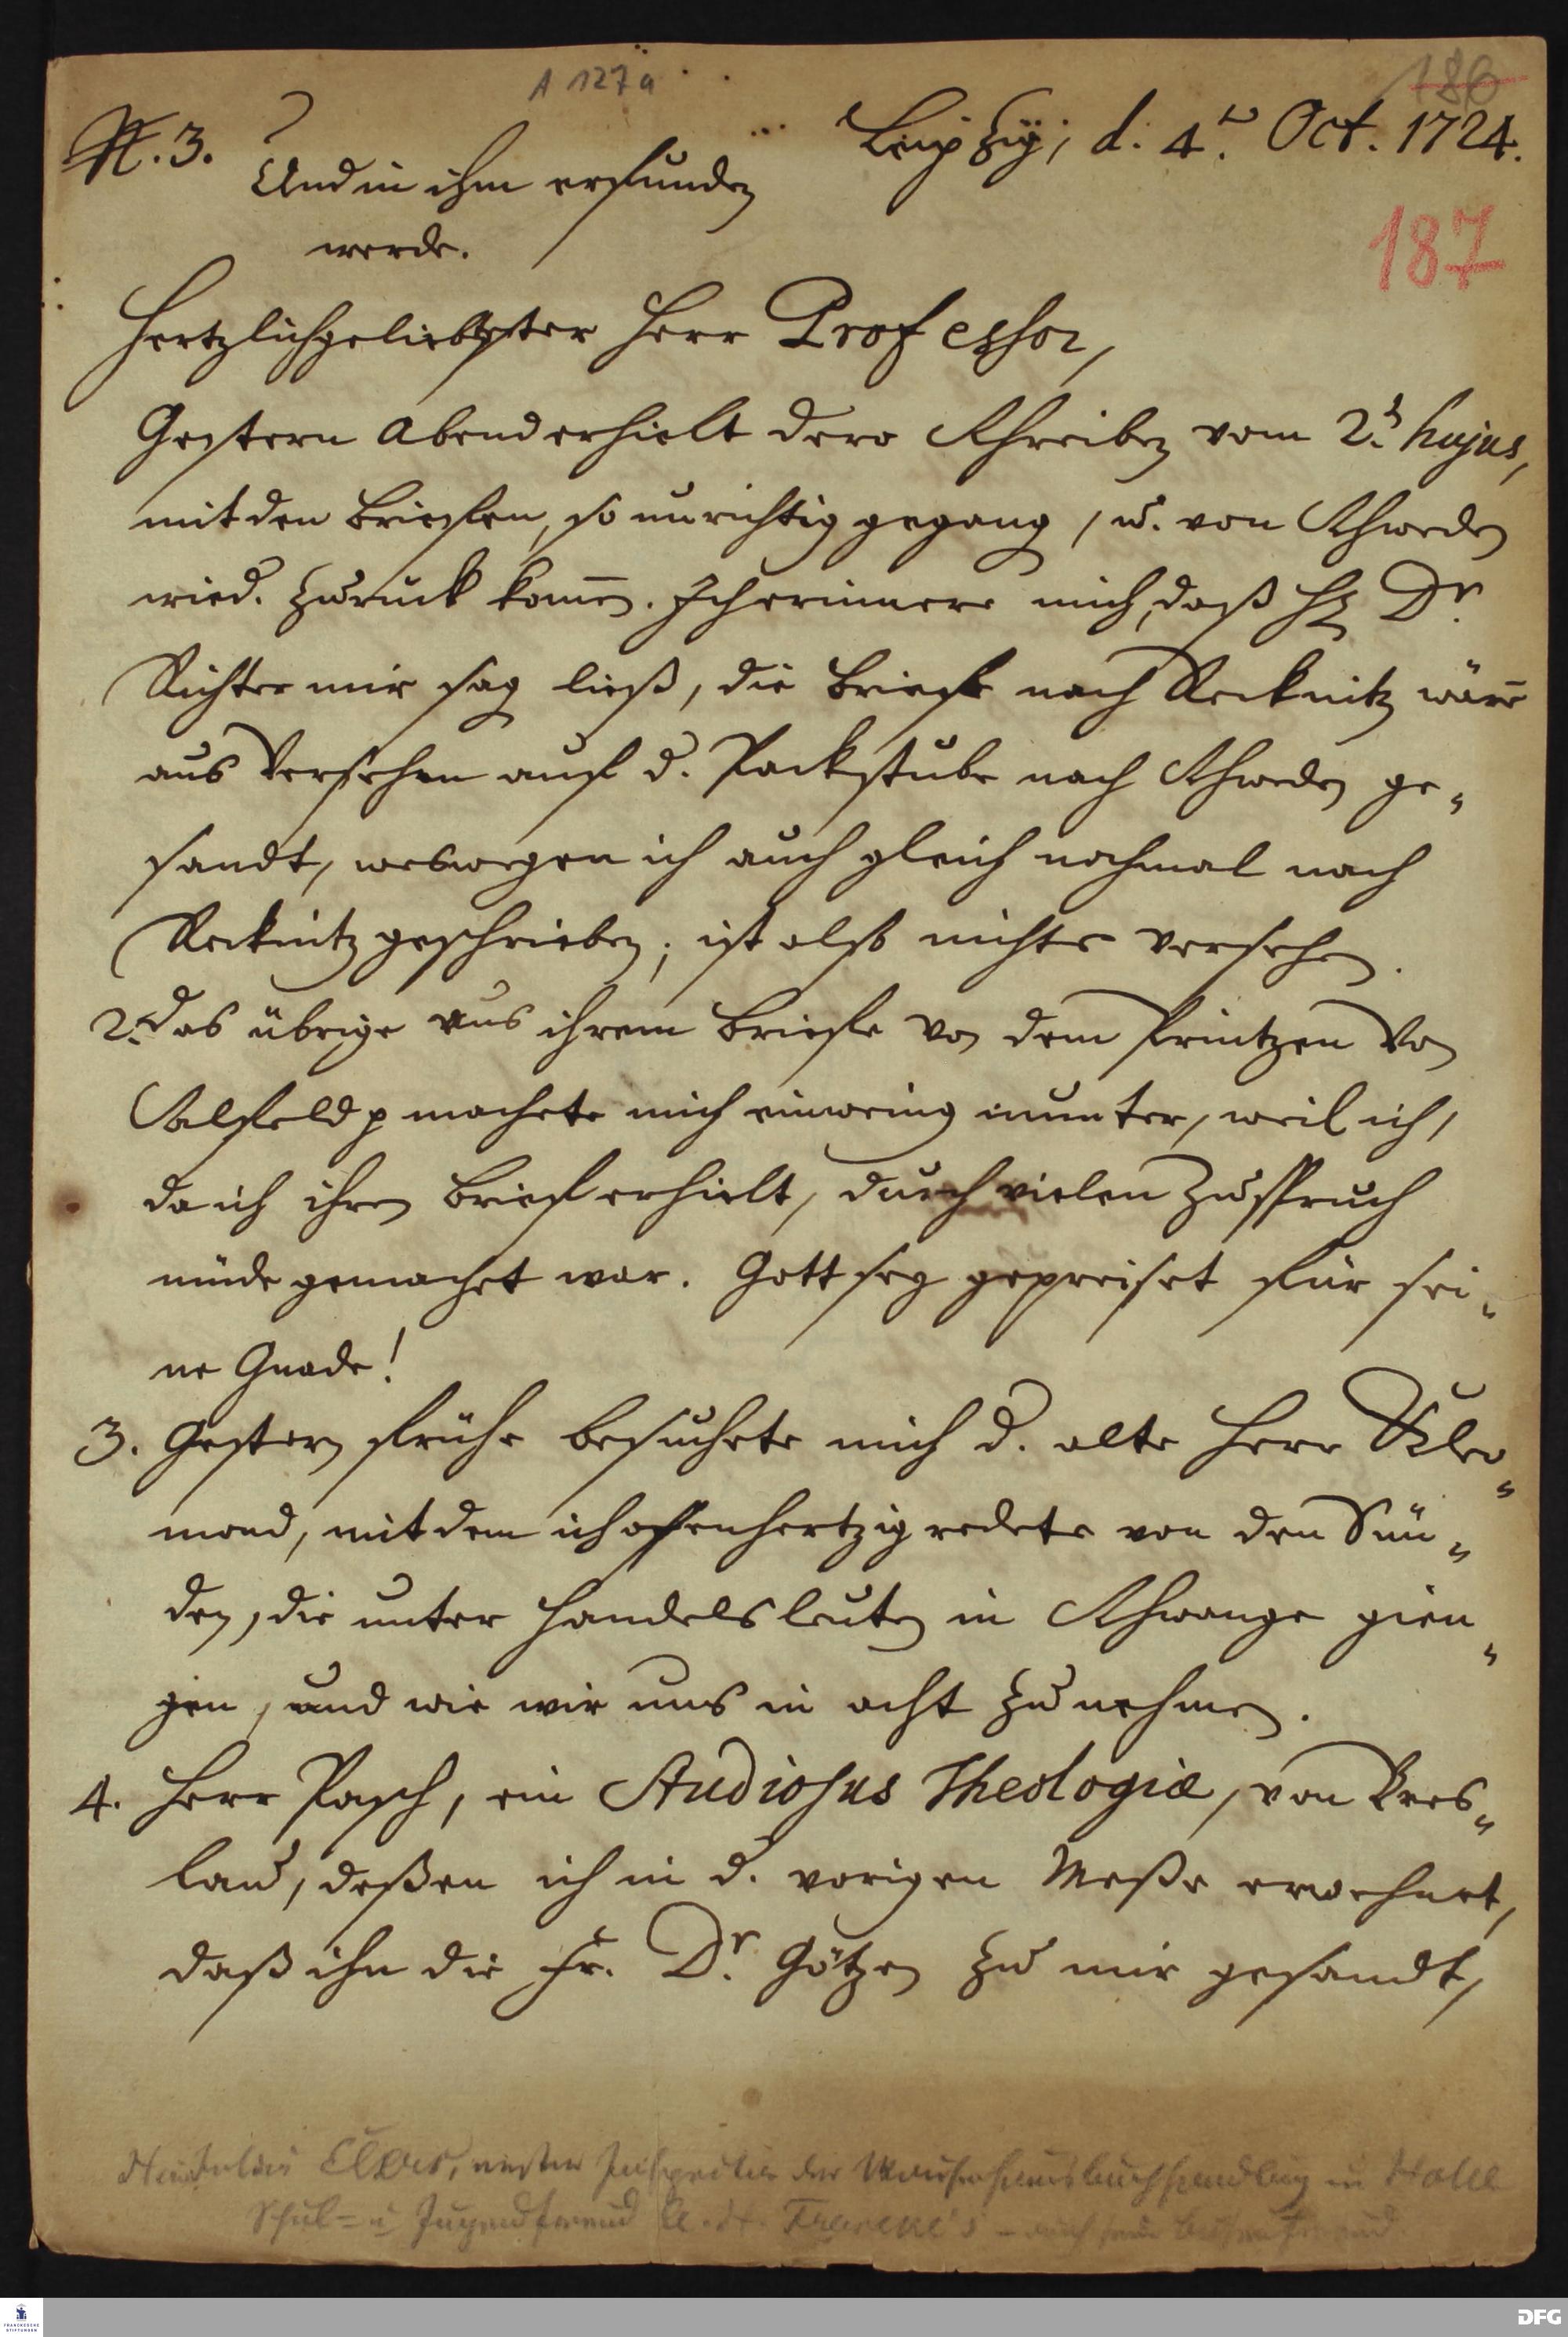 A 127a
186
N. 3.
Leipzig, d. 4. Oct. 1724.
Und in ihm erfunden
werde.
187
Hertzlichgeliebtester Herr Professor,
Gestern Abend erhielt dero Schreiben vom 2. hujus,
mit den Briefen, so unrichtig gegang, u. von Schweden
wied. zurück kom̄en. Ich erinnere mich, daß H. Dr.
Richter mir sag ließ, die Briefe nach Recknitz wären
aus Versehen auf d. Packstube nach Schweden ge-
sandt, weswegen ich auch gleich nochmal nach
Recknitz geschrieben; ist also nichts versehen.
2. Das übrige aus ihrem Briefe von dem Printzen von
Salfeld p machete mich ein wenig munter, weil ich,
da ich ihren Brief erhielt, durch vielen Zuspruch
müde gemachet war. Gott sey gepreiset für sei-
ne Gnade!
3. Gestern frühe besuchete mich d. alte Herr
mond, mit dem ich offenhertzig redete von den Sün-
den, die unter Handelsleuten in Schwange gien-
gen, und wie wir uns in acht zu nehmen.
4. Herr Pasch, ein Studiosus Theologiæ, von Bres-
lau, deßen ich in d. vorigen Meße erwehnet,
daß ihn die Fr. Dr. Götzen zu mir gesandt,
Elers, erster Inspector der Waisenhausbuchhandlung in Halle
Schul- u Jugendfreund A. H. Francke's - auch sein Busenfreund.
FRANCKESCHE STIFTUNGEN
DFG